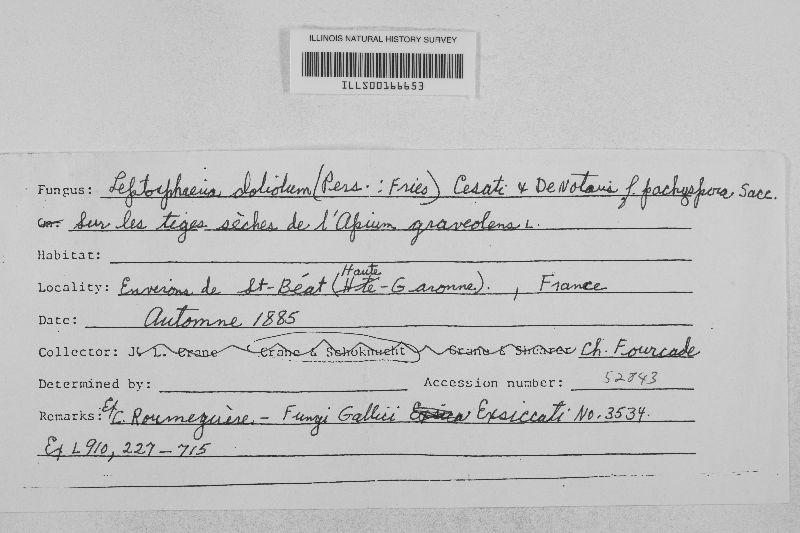 ILLINOIS NATURAL HISTORY SURVEY
ILLS00166653
Fungus: Leptosphaeria doliolum (Pers. : Fries) Cesati & DeNotaris f. pachyspora Sacc.
On: Sur les tiges sèches de l'Apium graveolens L.
Habitat:
Locality: Environs de St-Béat (Haute Hte-Garonne). , France
Date: Automne 1885
Collector: J. L. Crane Crane & Schoknecht Crane & Shearer Ch. Fourcade
Determined by: Accession number: 52843
Remarks: Ex C. Roumeguère - Fungi Gallici Exsiccati No. 3534.
Ex L 910, 227-715